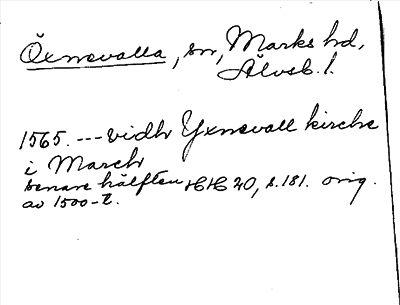 Öxnevalla, sn, Marks hd,
Älvsb. l.
1565. --- vidh Yxnevall kircke
i March
senare hälften HH 20, s. 181. orig.
av 1500-t.